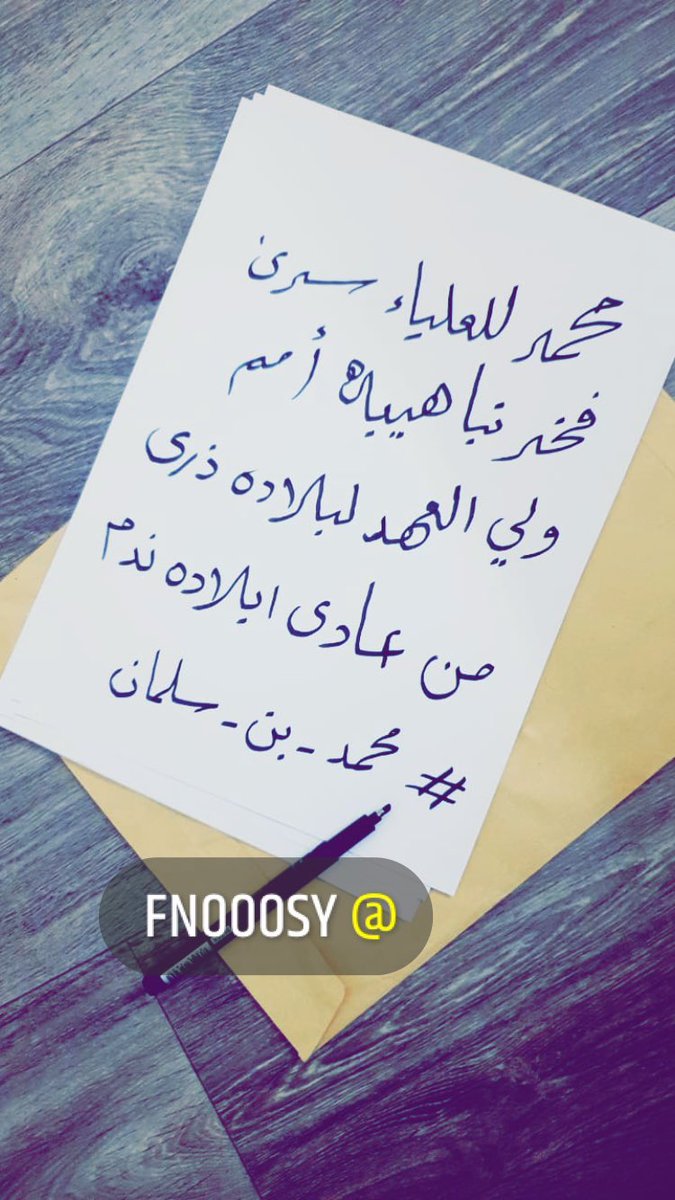 محمد للعلياء سرى
فخر تباهيباه أمم
ولي العهد لبلاده ذرى
من عادى ابلاده ندم
# محمد - بن - سلمان
FNOOOSY @